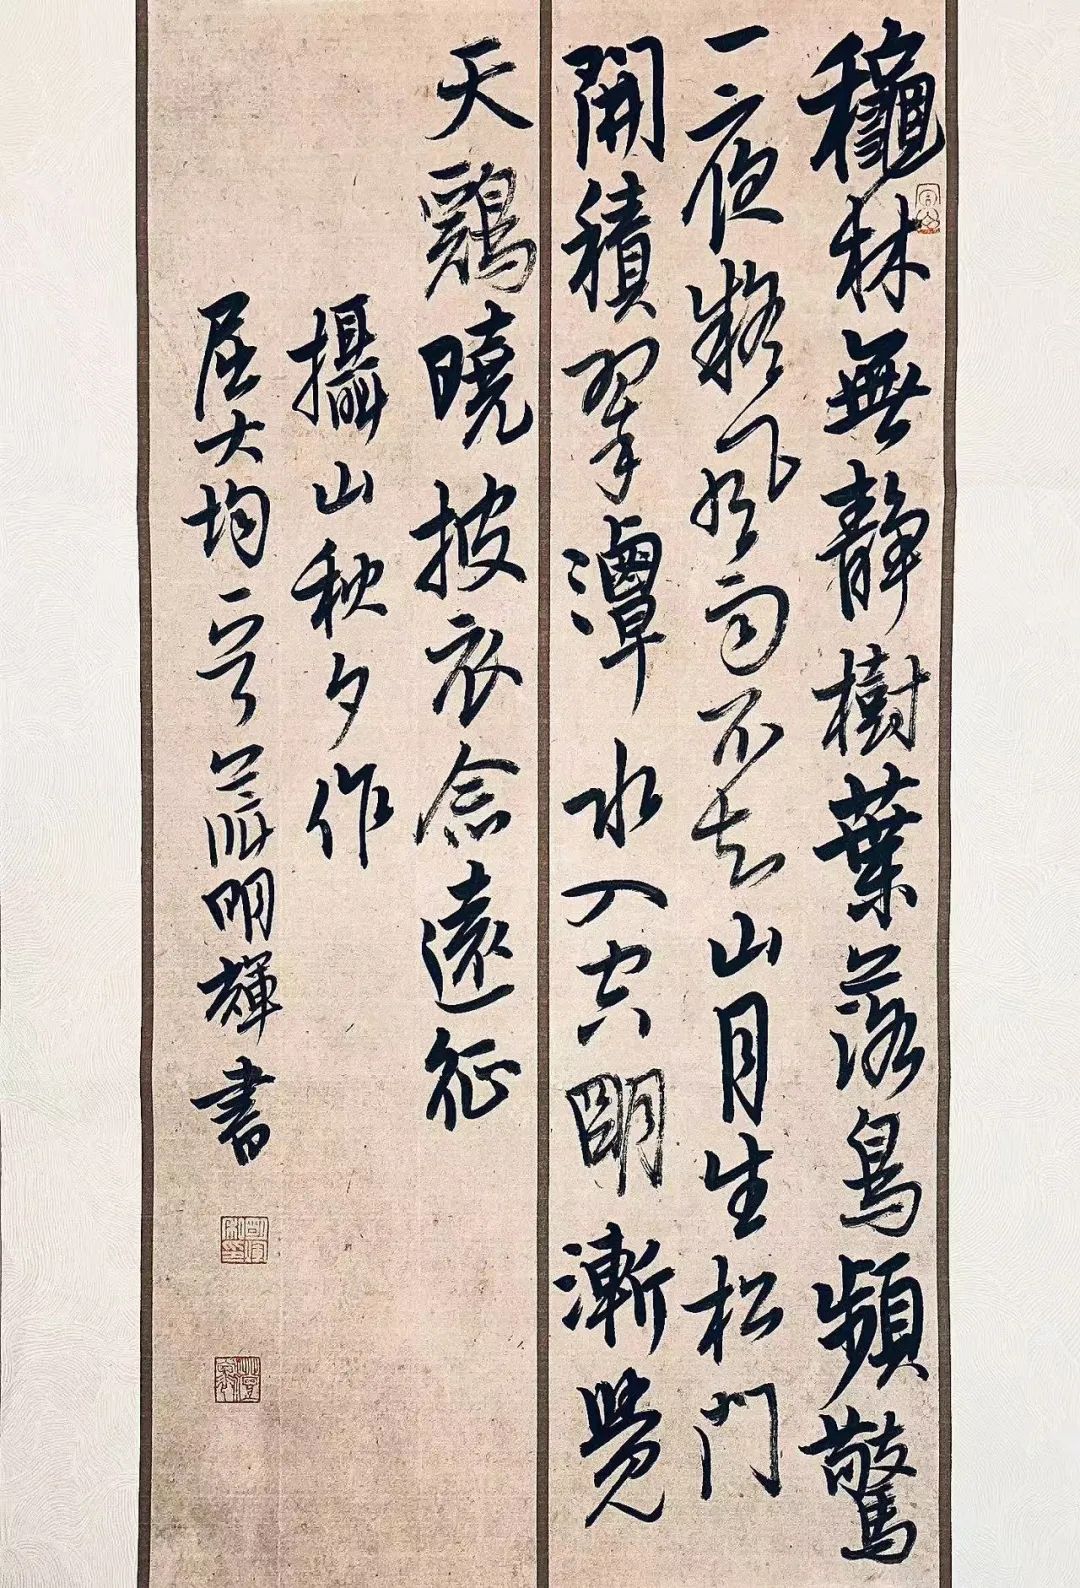 龝林無靜樹葉落鳥頻驚
一夜疑風雨不知山月生松門
開積翠潭水入空明漸覺
天鷄曉披衣念遠征
攝山秋夕作
屈大均一首莊明輝書